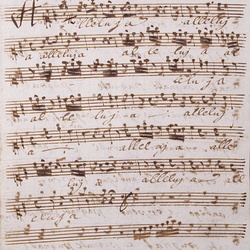 Alleluja alleluj
a alleluja al le luj a al
eluj a
al le luj a alleluj
a allel uj a alle
luj a alleluj a all
eluja